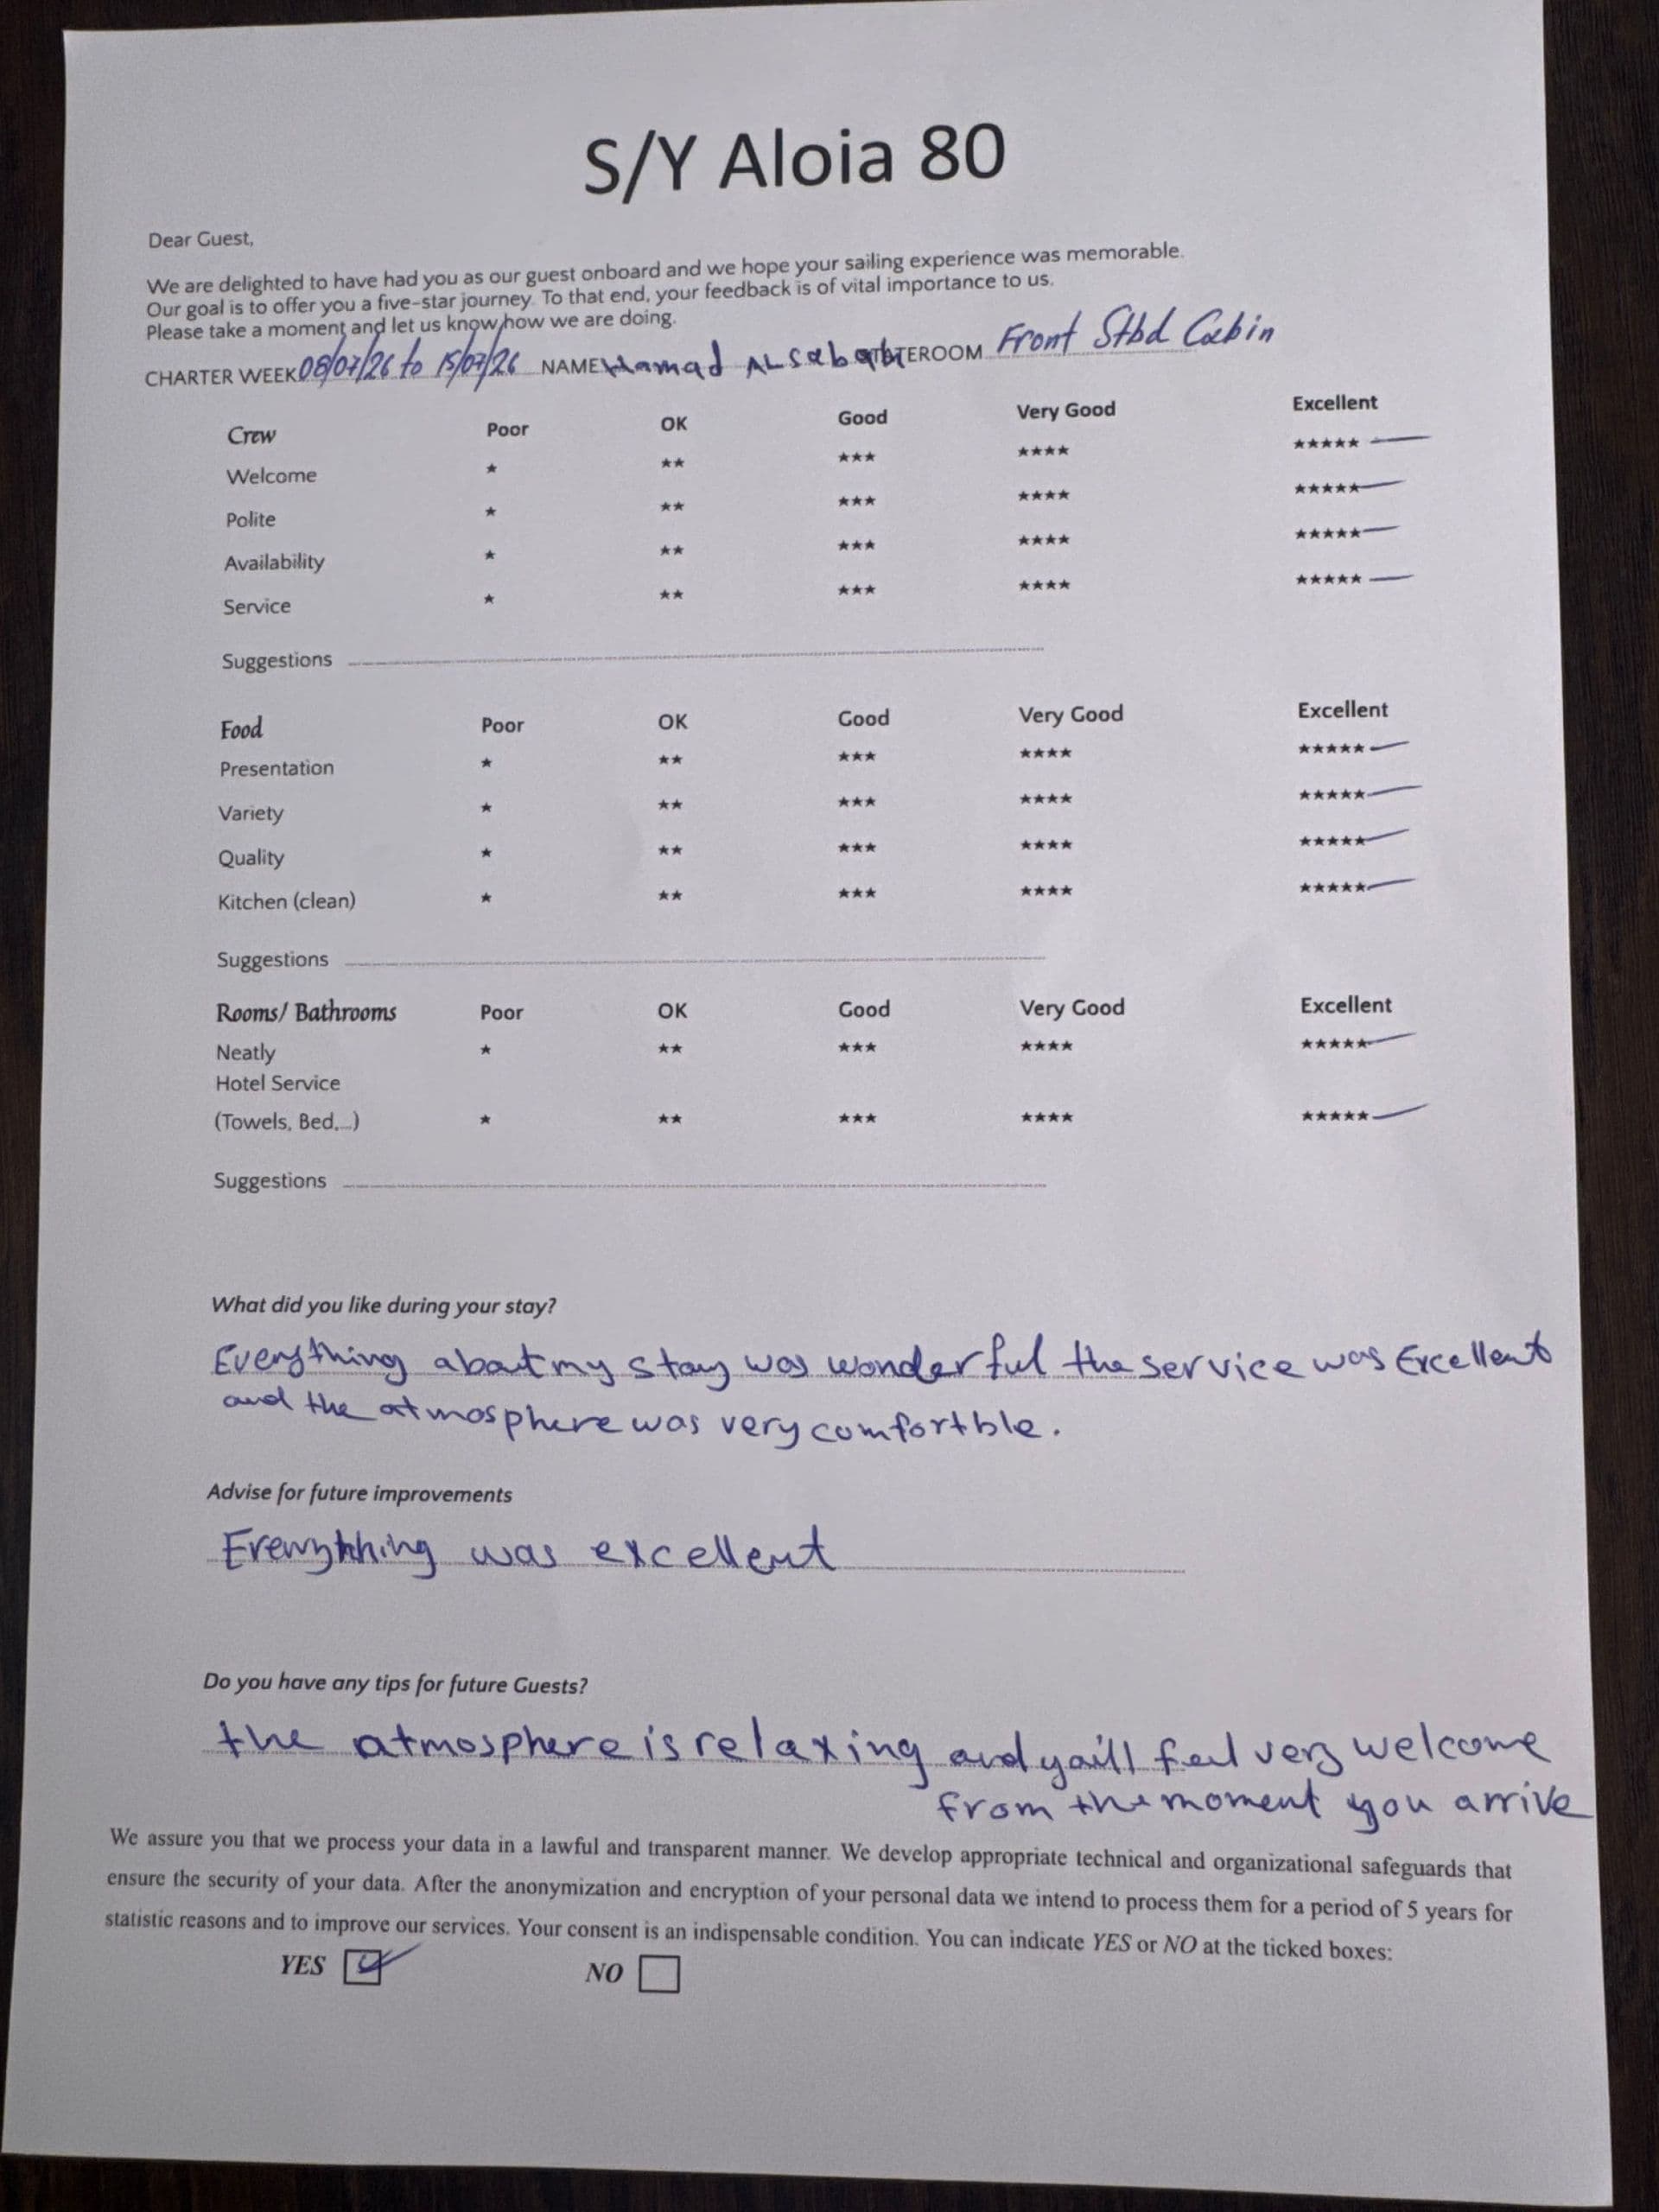 S/Y Aloia 80
Dear Guest,
We are delighted to have had you as our guest onboard and we hope your sailing experience was memorable.
Our goal is to offer you a five-star journey. To that end, your feedback is of vital importance to us.
Please take a moment and let us know how we are doing.
CHARTER WEEK 08/07/26 to 15/07/26 NAME Hamad ALSabah STATEROOM Front Stbd Cabin
Crew Poor OK Good Very Good Excellent
Welcome ★ ★★ ★★★ ★★★★ ★★★★★
Polite ★ ★★ ★★★ ★★★★ ★★★★★
Availability ★ ★★ ★★★ ★★★★ ★★★★★
Service ★ ★★ ★★★ ★★★★ ★★★★★
Suggestions
Food Poor OK Good Very Good Excellent
Presentation ★ ★★ ★★★ ★★★★ ★★★★★
Variety ★ ★★ ★★★ ★★★★ ★★★★★
Quality ★ ★★ ★★★ ★★★★ ★★★★★
Kitchen (clean) ★ ★★ ★★★ ★★★★ ★★★★★
Suggestions
Rooms/ Bathrooms Poor OK Good Very Good Excellent
Neatly ★ ★★ ★★★ ★★★★ ★★★★★
Hotel Service
(Towels, Bed,...) ★ ★★ ★★★ ★★★★ ★★★★★
Suggestions
What did you like during your stay?
Everything about my stay was wonderful the service was Excellent
and the atmosphere was very comfortble.
Advise for future improvements
Everything was excellent
Do you have any tips for future Guests?
the atmosphere is relaxing and you'll feel very welcome
from the moment you arrive
We assure you that we process your data in a lawful and transparent manner. We develop appropriate technical and organizational safeguards that
ensure the security of your data. After the anonymization and encryption of your personal data we intend to process them for a period of 5 years for
statistic reasons and to improve our services. Your consent is an indispensable condition. You can indicate YES or NO at the ticked boxes:
YES NO